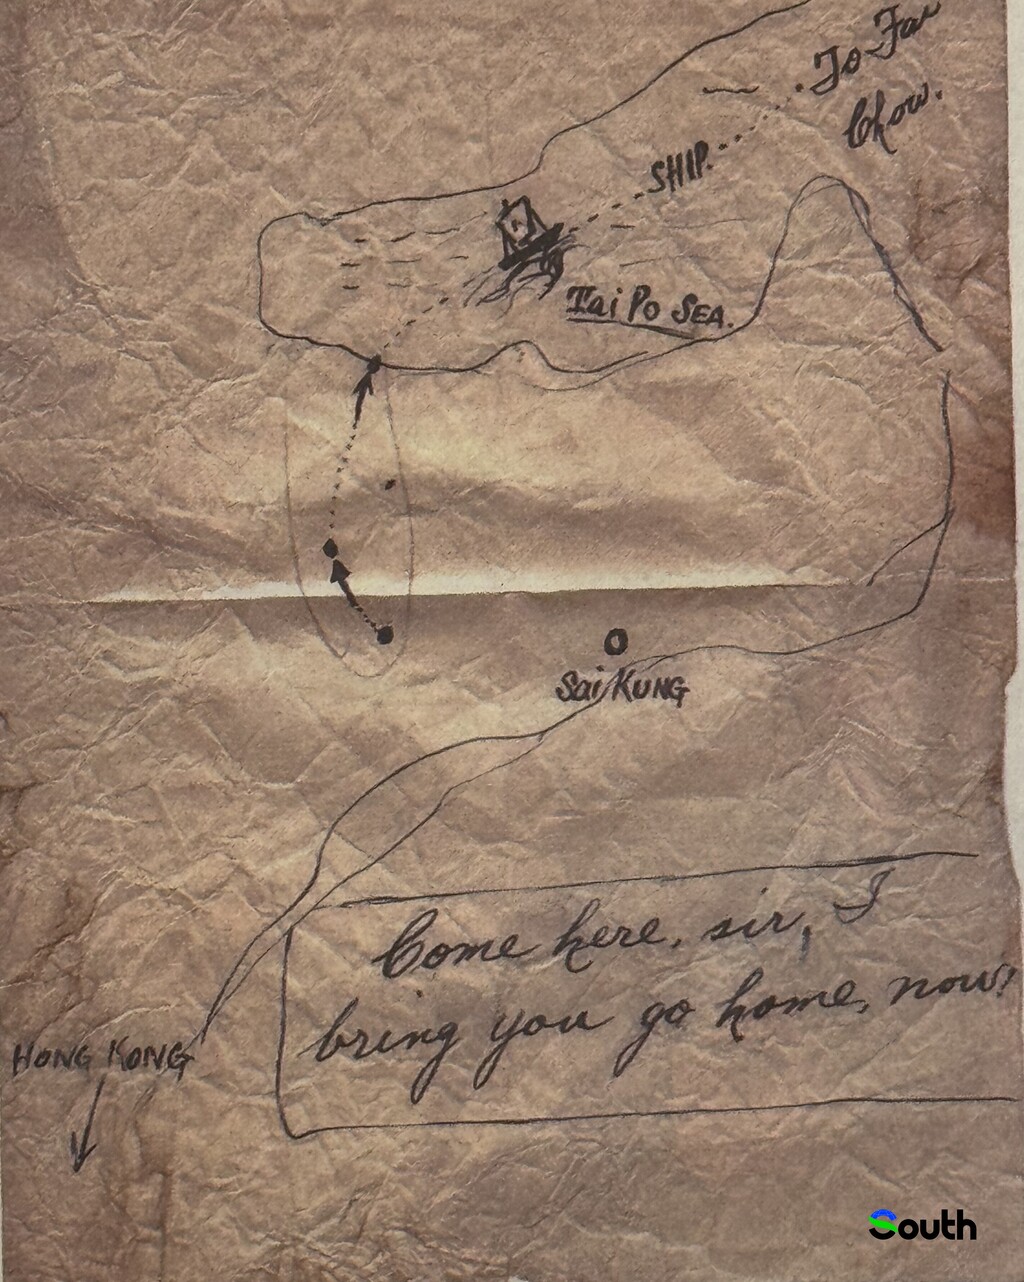 To Fau
Chow.
SHIP.
Tai Po SEA.
Sai KUNG
Come here, sir, I
bring you go home, now!
HONG KONG
South